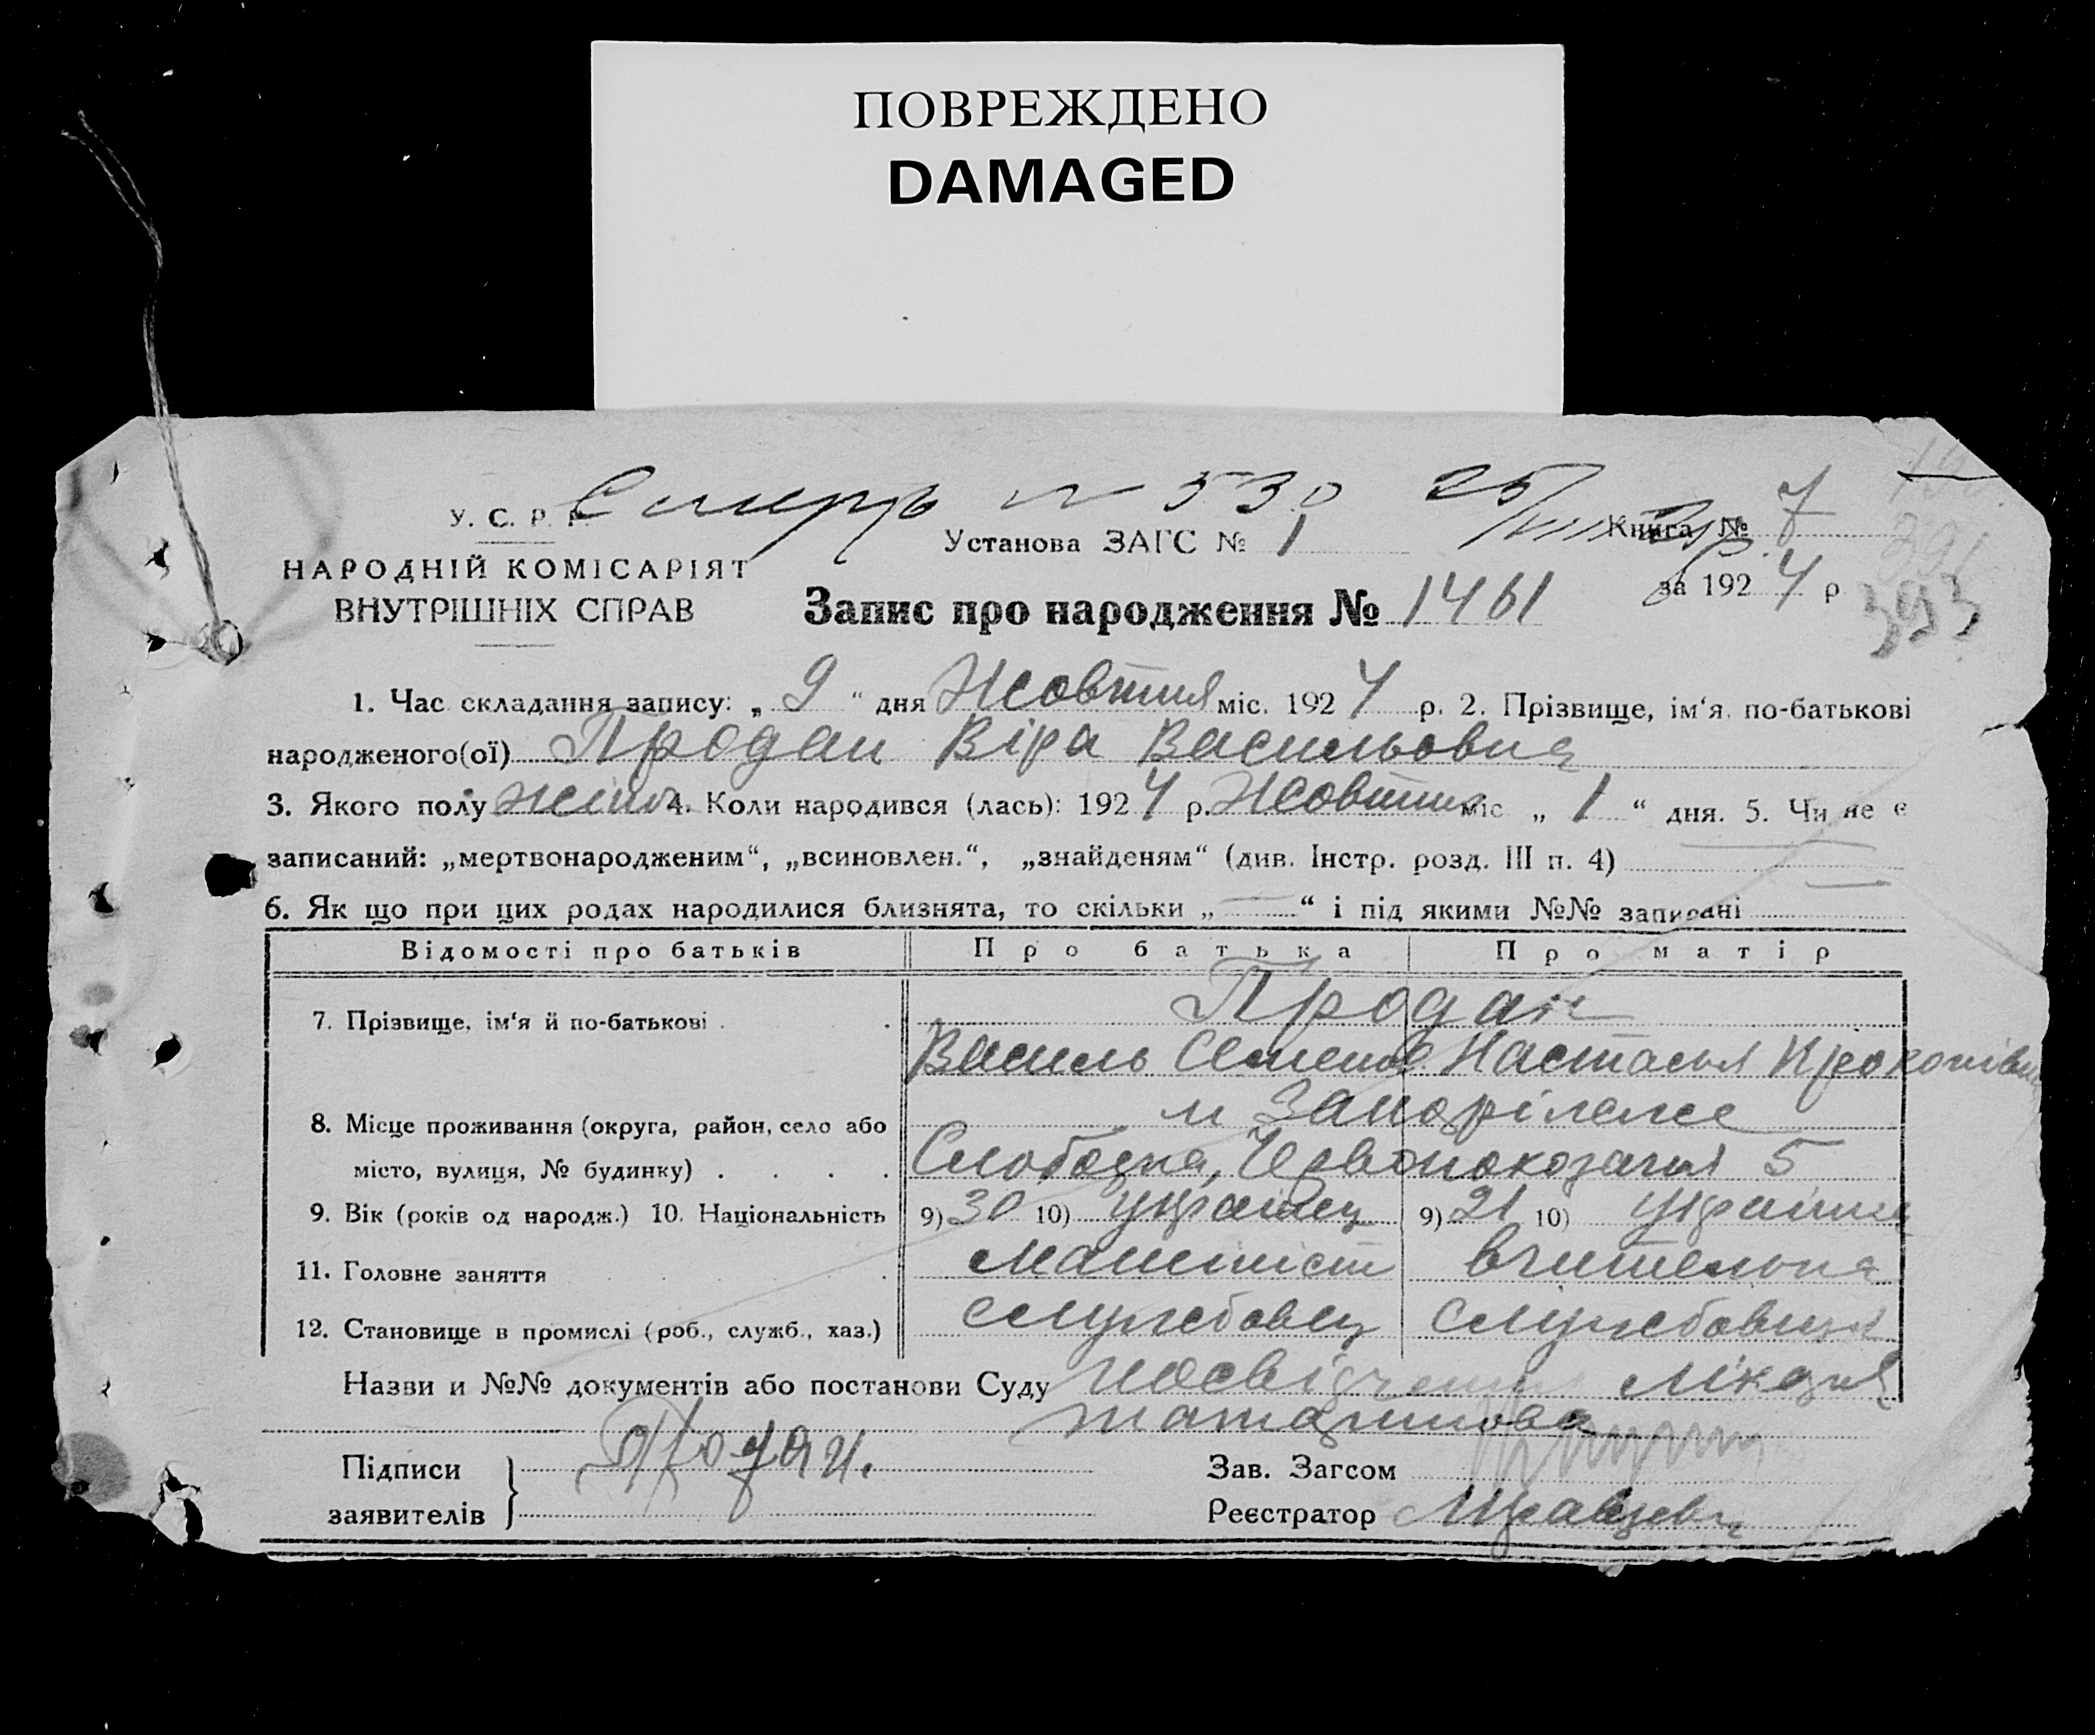 ПОВРЕЖДЕНО
DAMAGED
Смерть № 530 25/VIII
У. С. Р. Р.
Установа ЗАГС № 1
Книга № 7
НАРОДНІЙ КОМІСАРІЯТ
ВНУТРІШНІХ СПРАВ
Запис про народження № 1461
за 1924 р
393
1. Час складання запису: „ 9 “ дня Жовтня міс. 1924 р. 2. Прізвище, ім‘я, по-батькові
народженого(ої) Продан Віра Васильовна
3. Якого полу жіноч. 4. Коли народився (лась): 1924 р. Жовтня міс „ 1 “ дня. 5. Чи не є
записаний: „мертвонародженим“, „всиновлен.“, „знайденям“ (див. Інстр. розд. III п. 4) —
6. Як що при цих родах народилися близнята, то скільки „ — “ і під якими №№ записані —
Відомості про батьків Про батька Про матір
7. Прізвище, ім‘я й по-батькові . . Продан
Василь Семенов Настасья Прокопівна
8. Місце проживання (округа, район, село або м Запоріжже
місто, вулиця, № будинку) . . . . Слободка, Червонокозачая 5
9. Вік (років од народж.) 10. Національність 9) 30 10) українец 9) 21 10) українка
11. Головне заняття машиніст вчителька
12. Становище в промислі (роб., служб., хаз.) службовец службовиця
Назви и №№ документів або постанови Суду посвідчення лікаря
Підписи Продан.
заявителів
Зав. Загсом
Реєстратор